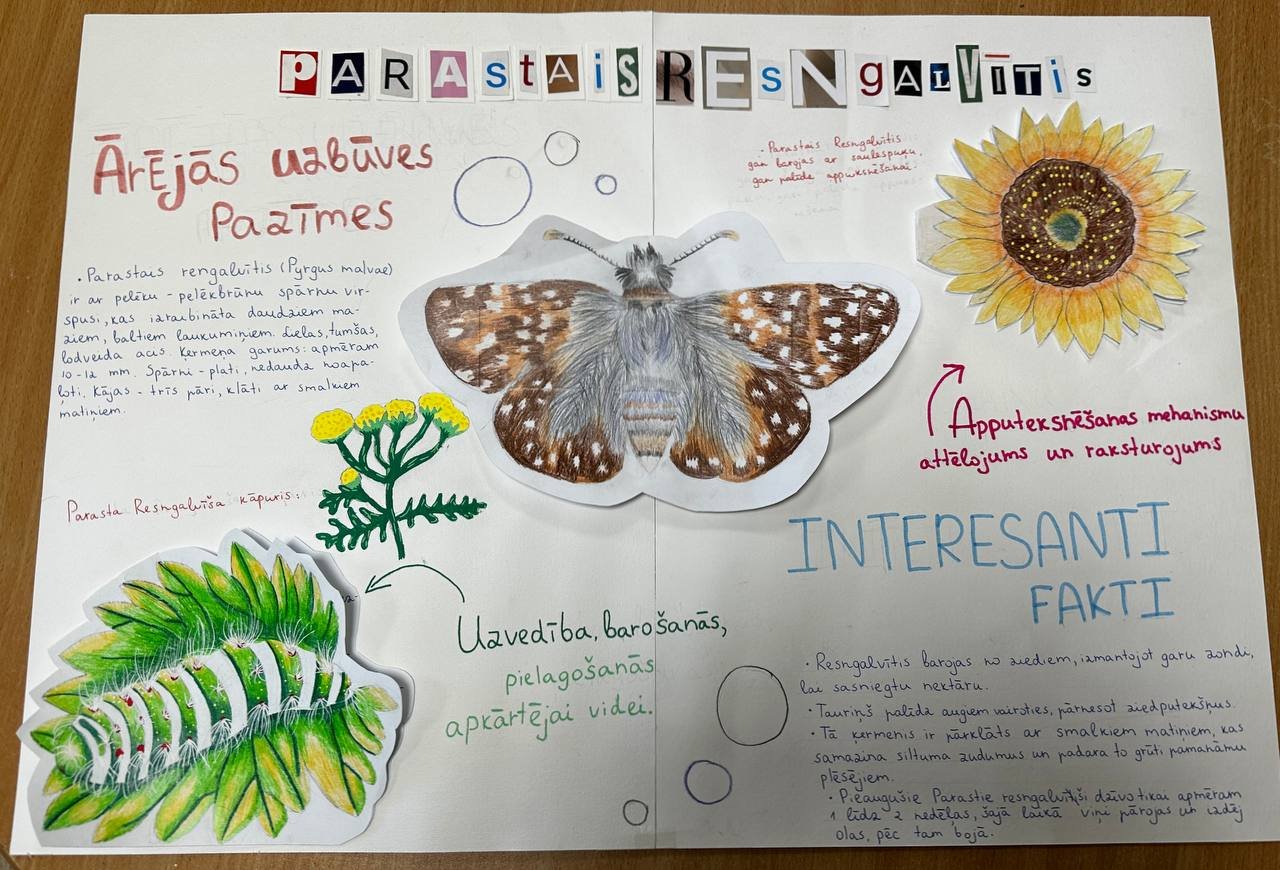 PARAstAiS RESNgALVĪTIS
ĀRĒJĀS uzbūves
Pazīmes
• Parastais rengalvītis (Pyrgus malvae)
ir ar pelēku - pelēkbrūnu spārnu vir-
spusi, kas izraibināta daudziem ma-
ziem, baltiem laukumiņiem. Lielas, tumšas,
lodveida acis. Ķermeņa garums: apmēram
10-12 mm. Spārni - plati, nedaudz noapa-
ļoti. Kājas - trīs pāri, klāti ar smalkiem
matiņiem.
• Parastais Resngalvītis
gan barojas ar saulespuķu,
gan palīdz apputeksnēšanai.
Apputeksnēšanas mehanismu
attēlojums un raksturojums
Parastā Resngalvīša kāpurs:
Uzvedība, barošanās,
pielagošanās
apkārtējai videi.
INTERESANTI
FAKTI
• Resngalvītis barojas no ziediem, izmantojot garu zondi,
lai sasniegtu nektāru.
• Tauriņš palīdz augiem vairoties, pārnesot ziedputekšņus.
• Tā ķermenis ir pārklāts ar smalkiem matiņiem, kas
samazina siltuma zudumus un padara to grūti pamanāmu
plēsējiem.
• Pieaugušie Parastie resngalvīši dzīvo tikai apmēram
1 līdz 2 nedēļas, šajā laikā viņi pārojas un izdēj
olas, pēc tam bojā.